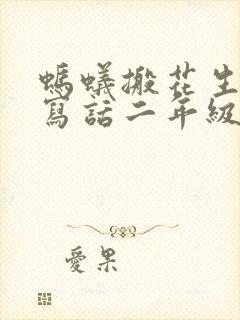 螞蟻搬花生
寫話二年級
愛果